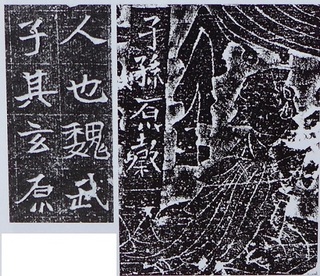 人也魏武
子其玄原
子孫原穀